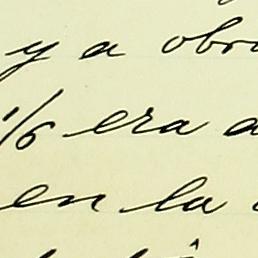 y a obra
1/6 era a
en la